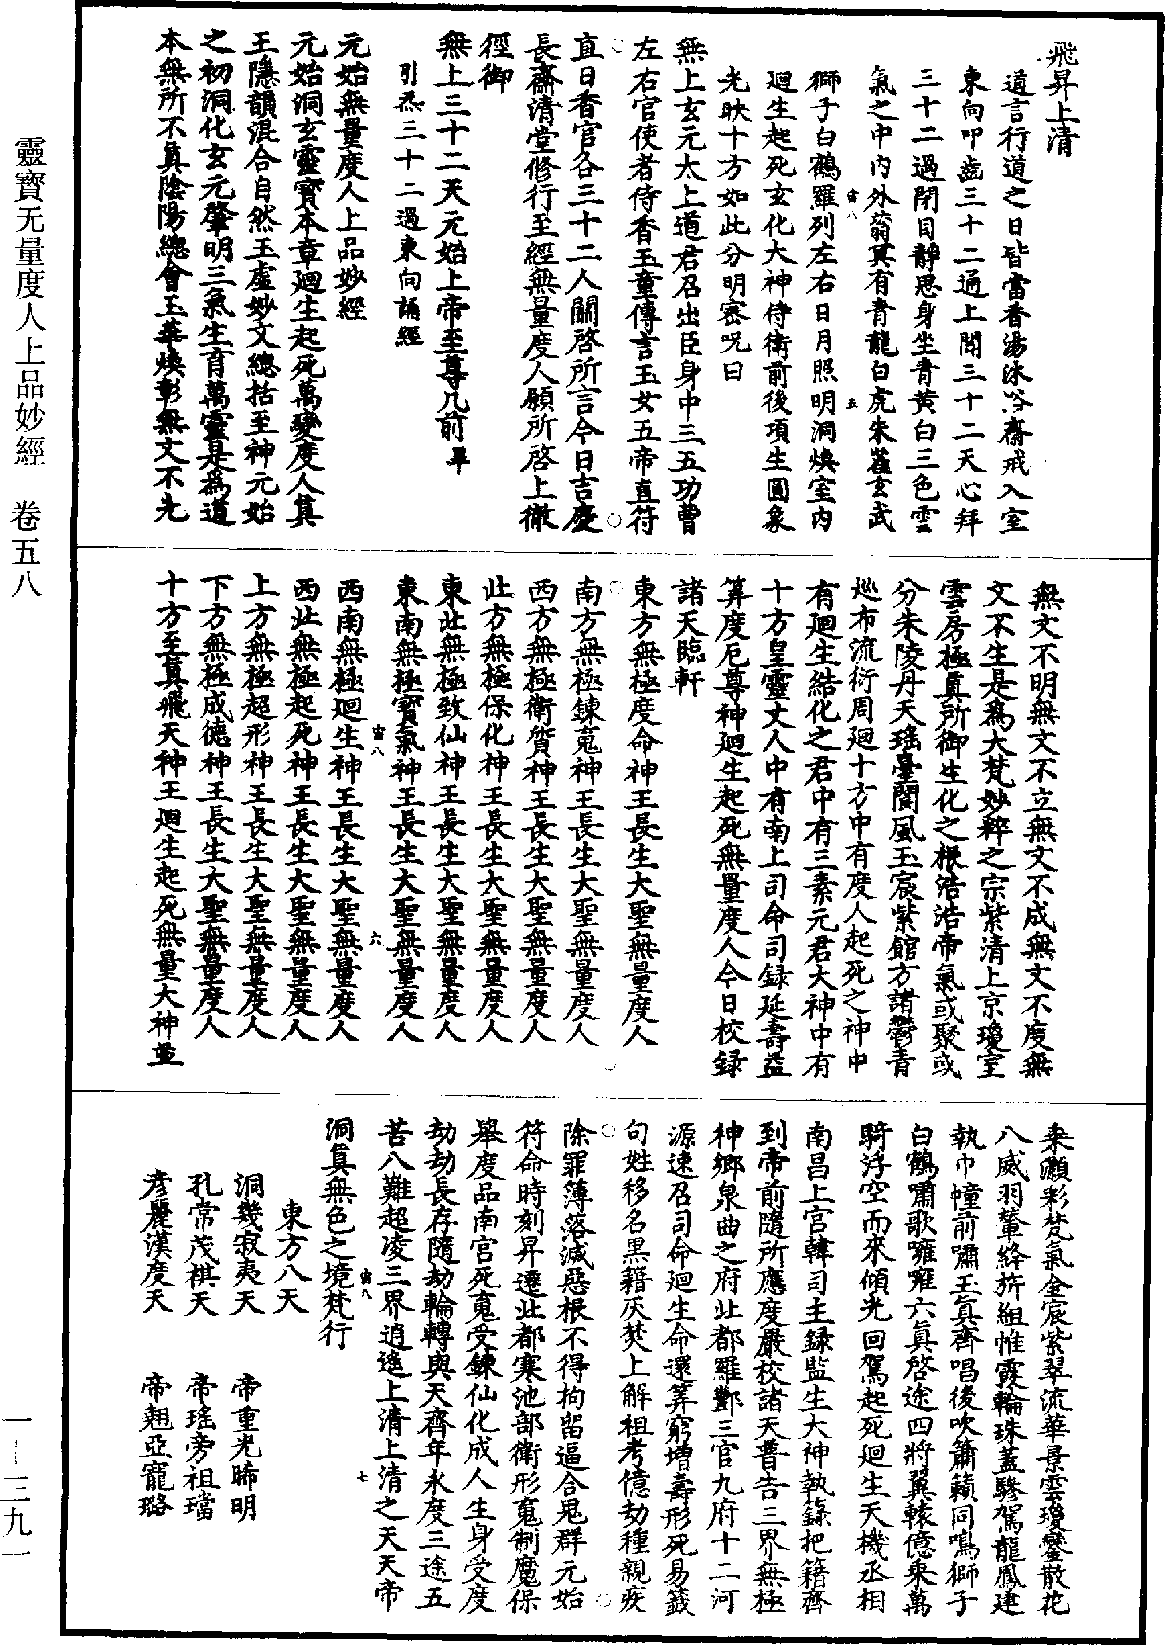 飛昇上清
道言行道之日皆當香湯沐浴齋戒入室
東向叩齒三十二通上聞三十二天心拜
三十二過閉目靜思身坐青黃白三色雲
氣之中內外蓊冥有青龍白虎朱雀玄武
獅子白鶴羅列左右日月照明洞煥室內
迴生起死玄化大神侍衛前後項生圓象
光映十方如此分明密呪曰
無上玄元太上道君召出臣身中三五功曹
左右官使者侍香玉童傳言玉女五帝直符
直日香官各三十二人關啓所言今日吉慶
長齋清堂修行至經無量度人願所啓上徹
徑御
無上三十二天元始上帝至尊几前畢
引炁三十二過東向誦經
元始無量度人上品妙經
元始洞玄靈寶本章迴生起死萬變度人眞
王隱韻混合自然玉虛妙文總括至神元始
之初洞化玄元肇明三氣生育萬靈是爲道
本無所不眞陰陽總會玉華煥彰無文不光
無文不明無文不立無文不成無文不度無
文不生是爲大梵妙粹之宗紫清上京瓊室
雲房極眞所御生化之根浩浩帝氣或聚或
分朱陵丹天瑤臺閬風玉宸紫館方諸鬱青
㢟布流衍周迴十方中有度人起死之神中
有迴生結化之君中有三素元君大神中有
十方皇靈丈人中有南上司命司録延壽益
筭度厄尊神迴生起死無量度人今日校録
諸天臨軒
東方無極度命神王長生大聖無量度人
南方無極鍊䰟神王長生大聖無量度人
西方無極衛質神王長生大聖無量度人
北方無極保化神王長生大聖無量度人
東北無極致仙神王長生大聖無量度人
東南無極寶氣神王長生大聖無量度人
西南無極迴生神王長生大聖無量度人
西北無極起死神王長生大聖無量度人
上方無極超形神王長生大聖無量度人
下方無極成德神王長生大聖無量度人
十方至眞飛天神王迴生起死無量大神並
乘灝彩梵氣金宸紫翠流華景雲瓊鑾散花
八威羽輦絳旂組帷霞輪珠蓋驂駕龍鳳建
執巾幢前嘯玉眞齊唱後吹簫籟同鳴獅子
白鶴嘯歌嗈嗈六眞啓途四將翼轅億乘萬
騎浮空而來傾光回駕起死迴生天機丞相
南昌上宮韓司主録監生大神執籙把籍齊
到帝前隨所應度嚴校諸天普告三界無極
神鄉泉曲之府北都羅酆三官九府十二河
源速召司命迴生命還筭窮增壽形死易籤
句姓移名黑籍灰焚上解祖考億劫種親疾
除罪簿落滅惡根不得拘留逼合鬼群元始
符命時刻昇遷北都寒池部衛形䰟制魔保
舉度品南宮死䰟受鍊仙化成人生身受度
劫劫長存隨劫輪轉與天齊年永度三途五
苦八難超凌三界逍遙上清上清之天天帝
洞眞無色之境梵行
東方八天
洞幾寂夷天　帝重光晞明
孔常茂棋天　帝瑤旁祖璫
彦麗漢度天　帝趐亞寵璐
宙八
五
宙八
六
宙八
七
靈寶无量度人上品妙經　卷五八
一—三九一